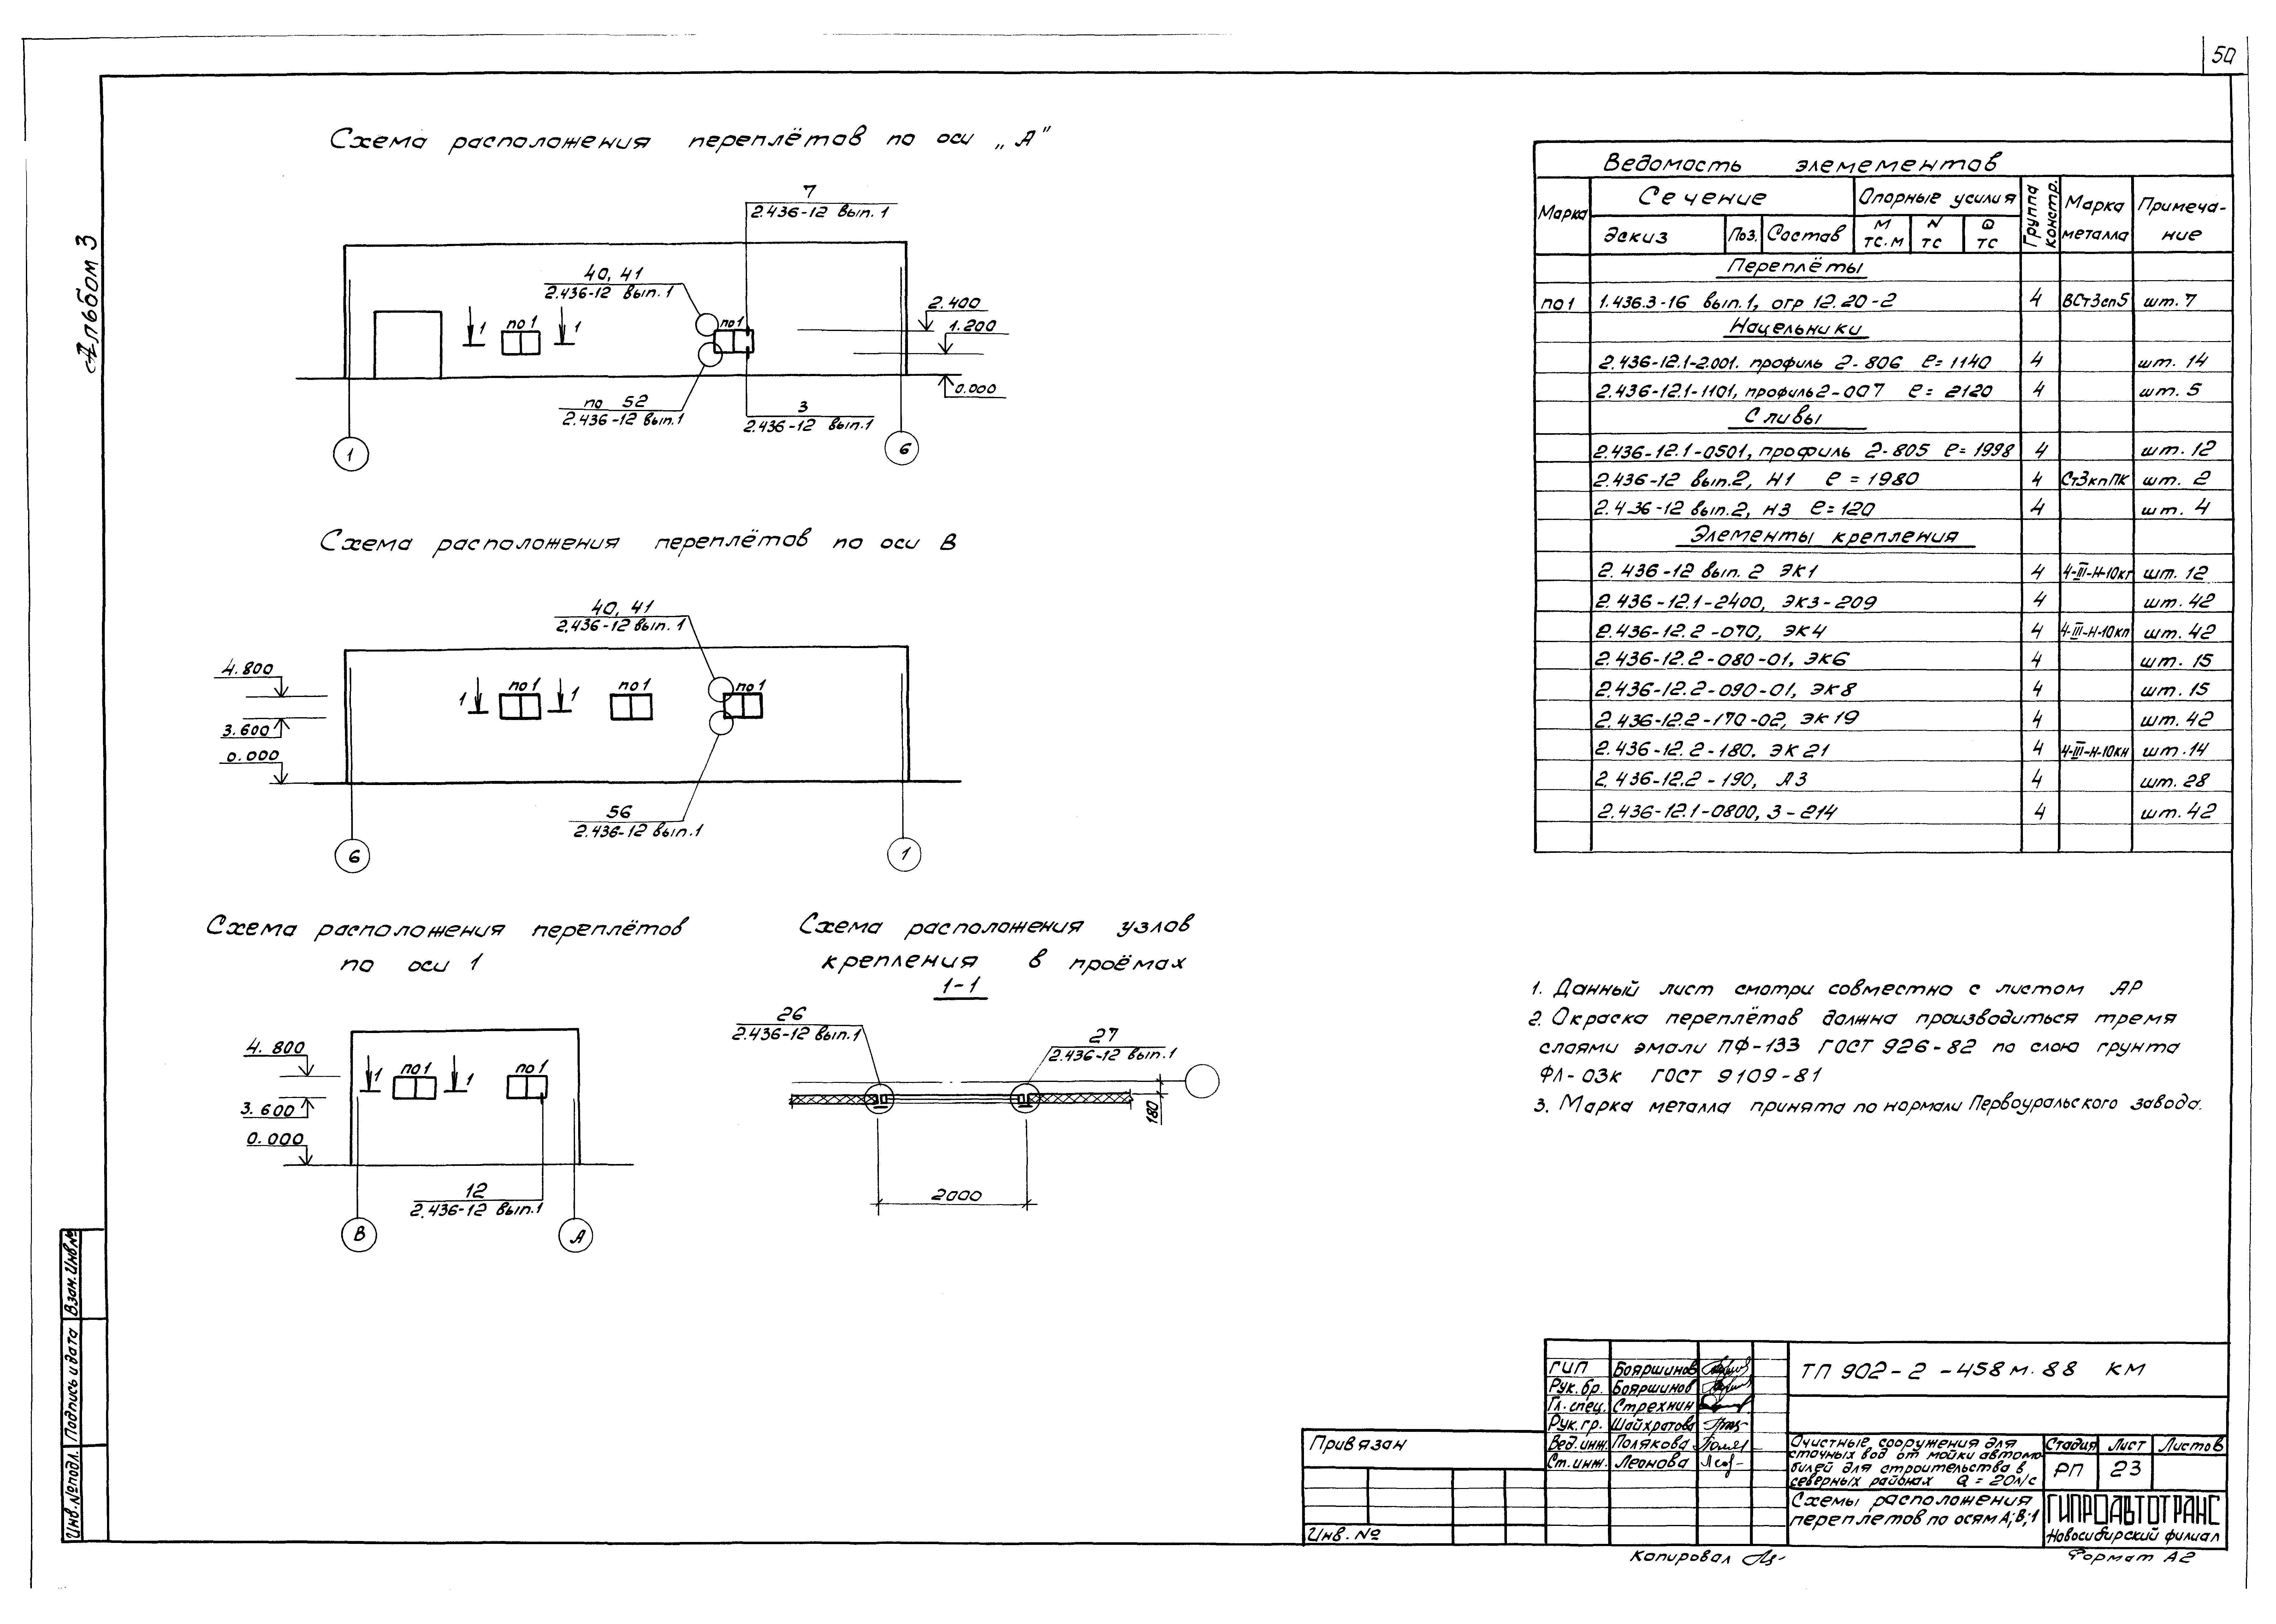 50
Альбом 3
Схема расположения переплётов по оси „А"
7
2.436-12 вып. 1
40, 41
2.436-12 вып. 1
1
по1
1
по1
2.400
1.200
0.000
по 52
2.436-12 вып.1
3
2.436-12 вып.1
1
6
Схема расположения переплётов по оси В
40, 41
2.436-12 вып. 1
4.800
3.600
0.000
1
по1
1
по1
по1
56
2.436-12 вып.1
6
1
Схема расположения переплётов
по оси 1
4.800
3.600
0.000
1
по1
1
по1
12
2.436-12 вып.1
В
А
Схема расположения узлов
крепления в проёмах
1-1
26
2.436-12 вып.1
27
2.436-12 вып.1
180
2000
Ведомость элемементов
Марка
Сечение
Опорные усилия
Группа констр.
Марка металла
Примечание
Эскиз
Поз.
Состав
М тс.м
N тс
Q тс
Переплёты
по1 1.436.3-16 вып.1, огр 12.20-2 4 ВСт3сп5 шт. 7
Нацельники
2.436-12.1-2.001. профиль 2-806 e=1140 4 шт. 14
2.436-12.1-1101, профиль 2-007 e= 2120 4 шт. 5
Сливы
2.436-12.1-0501, профиль 2-805 e= 1998 4 шт. 12
2.436-12 вып.2, Н1 e = 1980 4 Ст3кпПК шт. 2
2.436-12 вып.2, Н3 e=120 4 шт. 4
Элементы крепления
2.436-12 вып. 2 ЭК1 4 4-III-Н-10кп шт. 12
2.436-12.1-2400, ЭК3-209 4 шт. 42
2.436-12.2-070, ЭК4 4 4-III-Н-10кп шт. 42
2.436-12.2-080-01, ЭК6 4 шт. 15
2.436-12.2-090-01, ЭК8 4 шт. 15
2.436-12.2-170-02, ЭК19 4 шт. 42
2.436-12.2-180. ЭК21 4 4-III-Н-10кн шт. 14
2.436-12.2-190, А3 4 шт. 28
2.436-12.1-0800, 3-214 4 шт. 42
1. Данный лист смотри совместно с листом АР
2. Окраска переплётов должна производиться тремя
слоями эмали ПФ-133 ГОСТ 926-82 по слою грунта
ФЛ-03к ГОСТ 9109-81
3. Марка металла принята по нормали Первоуральского завода.
Взам.Инв.№
Подпись и дата
Инв.№подл.
Привязан
Инв. №
ГИП Бояршинов
Рук.бр. Бояршинов
Гл.спец. Стрехнин
Рук.гр. Шайхратова
Вед.инж. Полякова
Ст.инж. Леонова
ТП 902-2-458м.88 КМ
Очистные сооружения для
сточных вод от мойки автомо-
билей для строительства в
северных районах Q = 20л/с
Стадия Лист Листов
РП 23
Схемы расположения
переплетов по осям А;В;1
ГИПРОАВТОТРАНС
Новосибирский филиал
Копировал
Формат А2